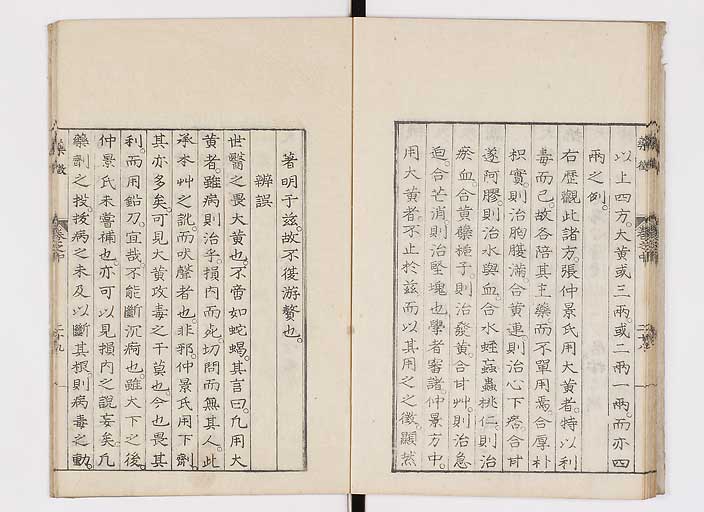 以上四方大黃或三兩。或二兩一兩。而亦四
兩之例。
右歷觀此諸方。張仲景氏用大黃者。特以利
毒而已。故各陪其主藥。而不單用焉。合厚朴
枳實。則治胸腹滿。合黃連。則治心下痞。合甘
遂阿膠。則治水與血。合水蛭䗪蟲桃仁。則治
瘀血。合黃蘗梔子。則治發黃。合甘艸。則治急
迫。合芒消。則治堅塊也。學者審諸。仲景方中。
用大黃者。不止於茲。而以其用之之徵。顯然
著明于茲。故不復游贅也。
辨誤
世醫之畏大黃也。不啻如蛇蝎。其言曰。凡用大
黃者。雖病則治乎。損內而死。切問而無其人。此
承本艸之訛。而吠聲者也。非邪。仲景氏用下劑。
其亦多矣。可見大黃攻毒之干莫也。今也畏其
利。而用鉛刀。宜哉。不能斷沉痾也。雖大下之後。
仲景氏未嘗補也。亦可以見損內之說妄矣。凡
藥劑之投拔病之未及以斷其根。則病毒之動。
藥徵
卷之中
二十八
藥徵
卷之中
二十九